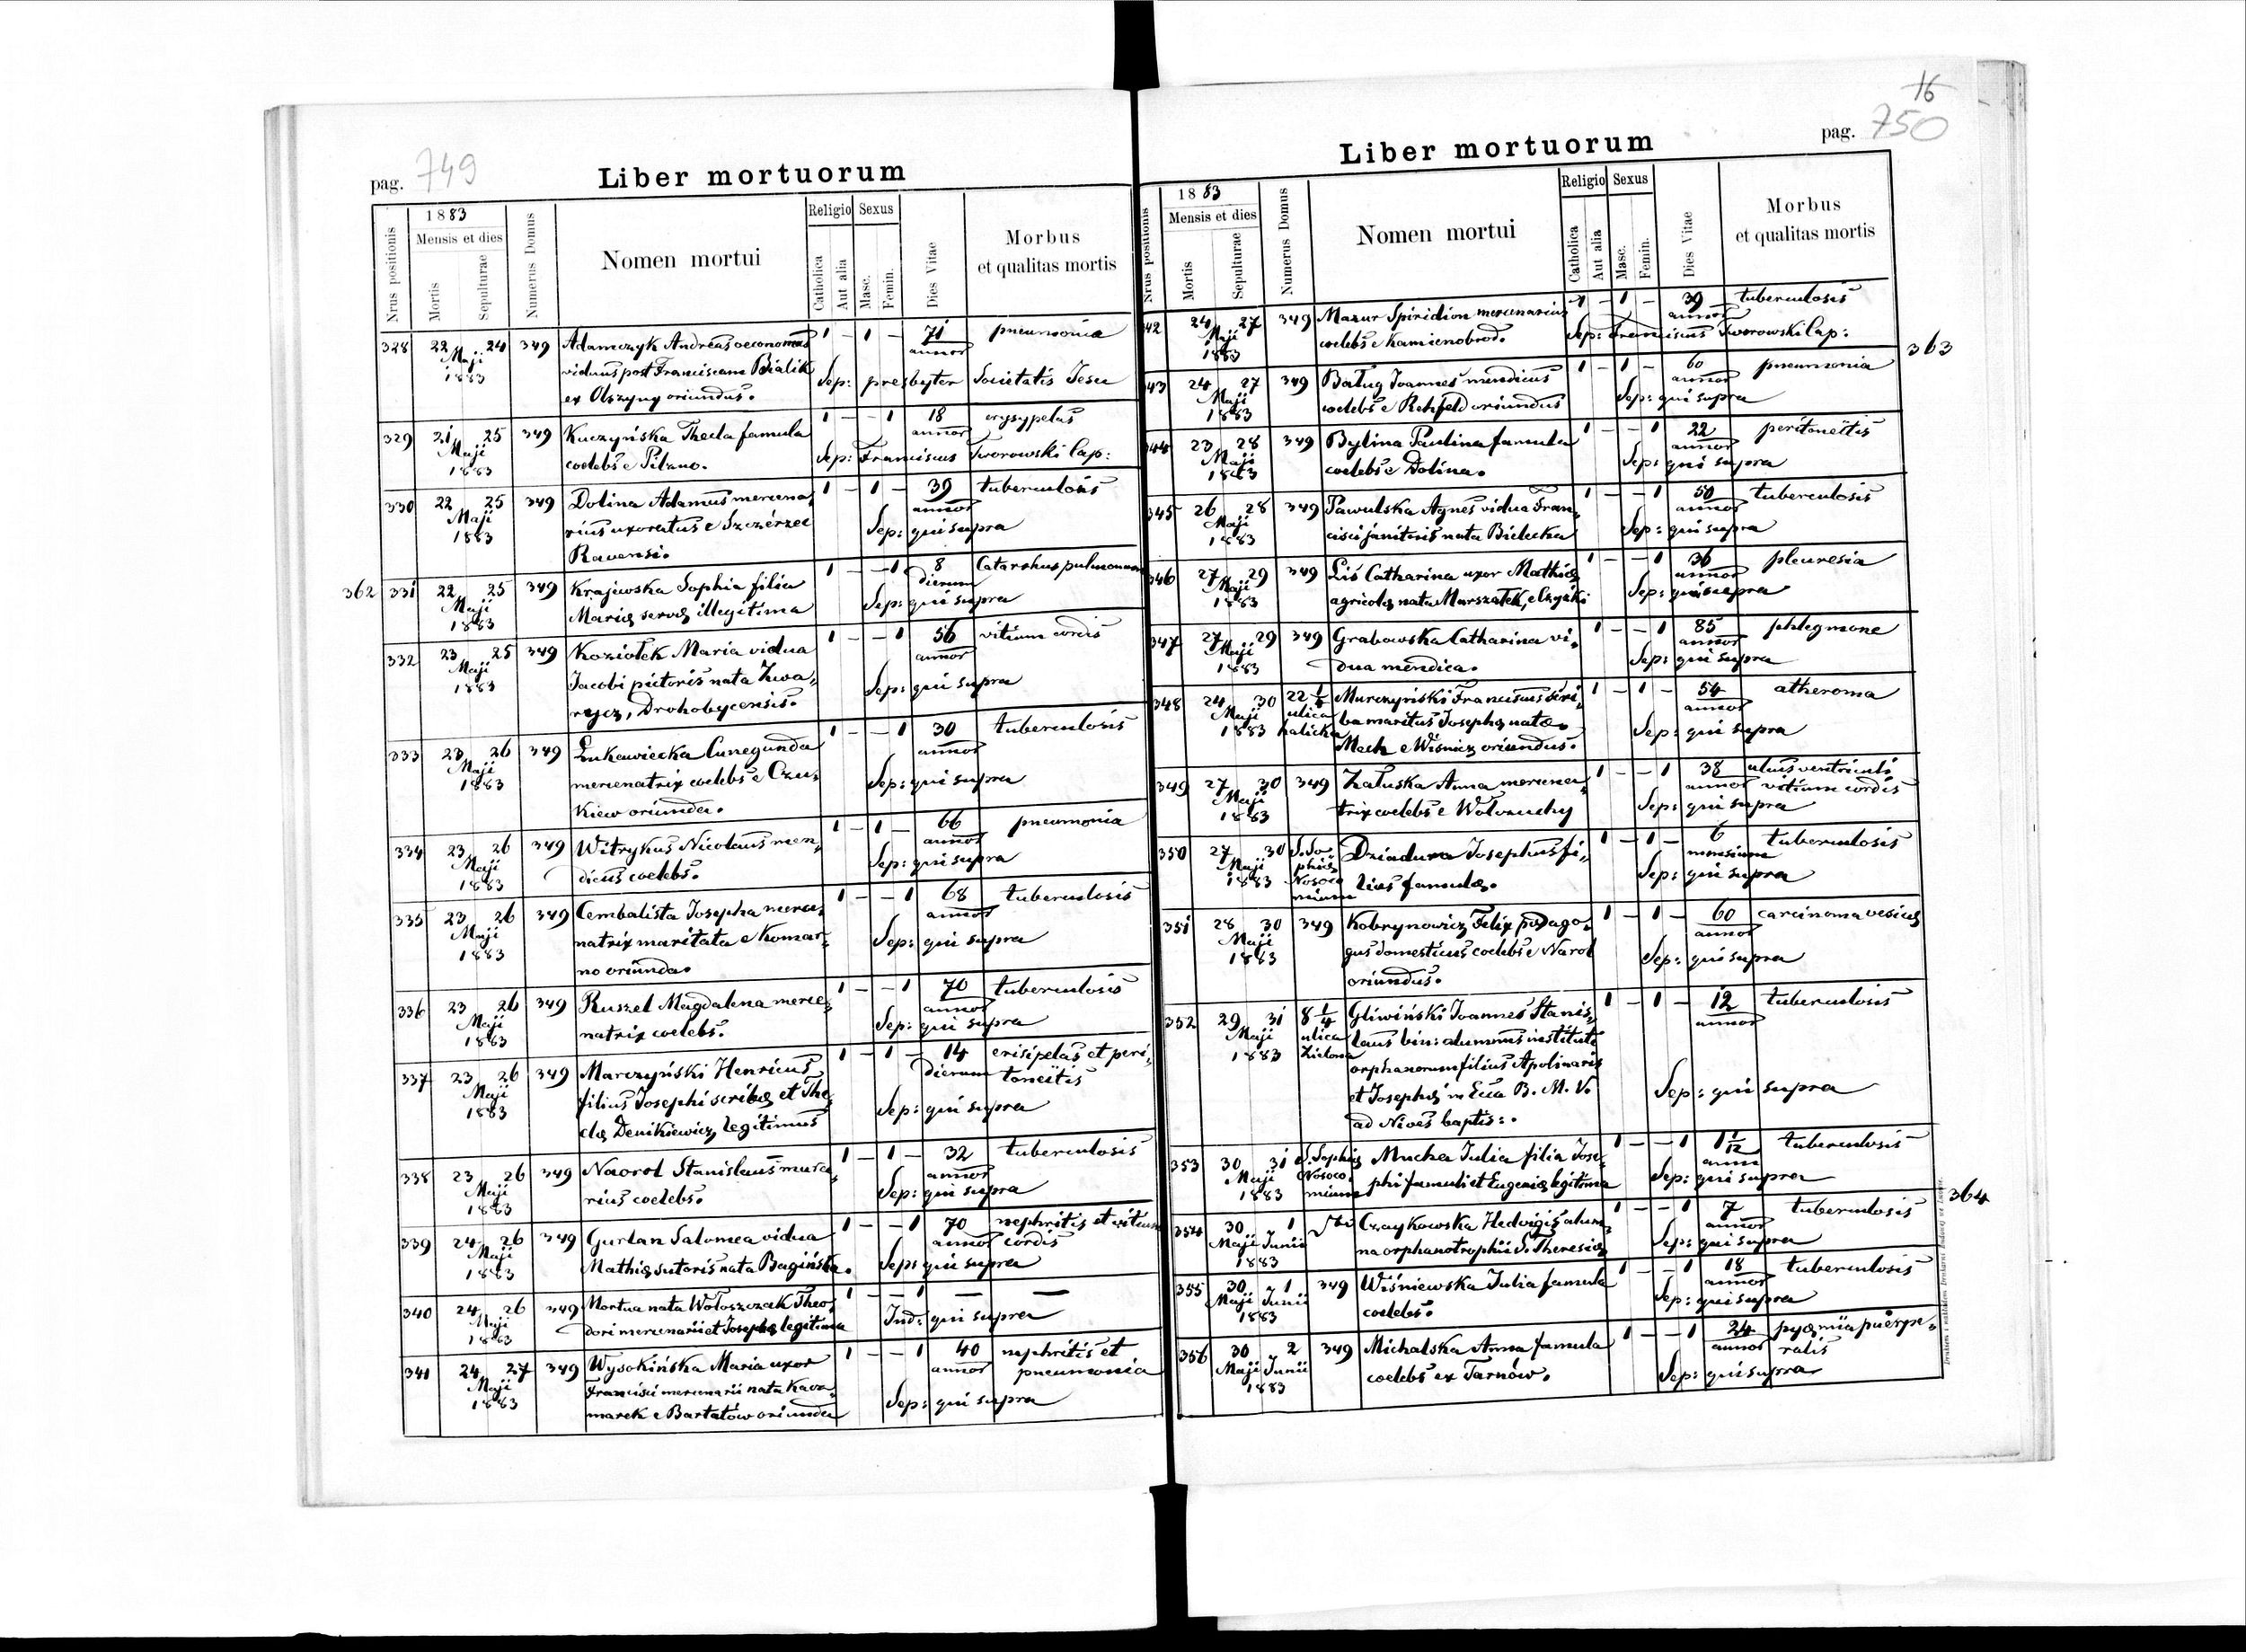 pag. 749
Liber mortuorum
Nrus positionis
1883
Mensis et dies
Mortis
Sepulturae
Numerus Domus
Nomen mortui
Religio
Catholica
Aut alia
Sexus
Masc.
Femin.
Dies Vitae
Morbus
et qualitas mortis
328 22 24 349 Adamczyk Andreas oeconomus 1 – 1 – 71 pneumonia
Maji viduus post Franciscam Bialik annor
1883 ex Olszyny oriundus. Sep: presbyter Societatis Jesu
329 21 25 349 Kuczyńska Thecla famula 1 – – 1 18 erysypelas
Maji coelebs e Pilzno. annor
1883 Sep: Franciscus Tworowski Cap:
330 22 25 349 Dolina Adamus mercena, 1 – 1 – 39 tuberculosis
Maji rius uxoratus e Szczérzec annor
1883 Ravensi. Sep: qui supra
362 331 22 25 349 Krajewska Sophia filia 1 – – 1 8 Catarrhus pulmonum
Maji Mariæ servæ illegitima dierum
1883 Sep: qui supra
332 23 25 349 Koziołek Maria vidua 1 – – 1 56 vitium cordis
Maji Jacobi pictoris nata Zwa, annor
1883 rycz, Drohobycensis. Sep: qui supra
333 23 26 349 Łukawiecka Cunegunda 1 – – 1 30 tuberculosis
Maji mercenatrix coelebs e Czu, annor
1883 kiew oriunda. Sep: qui supra
334 23 26 349 Witrykus Nicolaus men, 1 – 1 – 66 pneumonia
Maji dicus coelebs. annor
1883 Sep: qui supra
335 23 26 349 Cembalista Josepha merce, 1 – – 1 68 tuberculosis
Maji natrix maritata e Komar, annor
1883 no oriunda. Sep: qui supra
336 23 26 349 Ruszel Magdalena merce, 1 – – 1 70 tuberculosis
Maji natrix coelebs. annor
1883 Sep: qui supra
337 23 26 349 Marczyński Henricus 1 – 1 – 14 erisipelas et peri,
Maji filius Josephi scribæ et The, dierum toneïtis
1883 clæ Denikiewicz, legitimus Sep: qui supra
338 23 26 349 Naorol Stanislaus 1 – 1 – 32 tuberculosis
Maji rius coelebs. annor
1883 Sep: qui supra
339 24 26 349 Gurlan Salomea vidua 1 – – 1 70 nephritis et vitium
Maji Mathiæ sutoris nata Bagińska. annor cordis
1883 Sep: qui supra
340 24 26 349 Mortua nata Wołoszczak Theo, 1 – – 1 — —
Maji dori mercenarii et Josephæ legitima Ind: qui supra
1883
341 24 27 349 Wysokińska Maria uxor 1 – – 1 40 nephritis et
Maji Francisci mercenarii nata Kacz, annor pneumonia
1883 marek e Bartatów oriunda Sep: qui supra
16
pag. 750
Liber mortuorum
Nrus positionis
1883
Mensis et dies
Mortis
Sepulturae
Numerus Domus
Nomen mortui
Religio
Catholica
Aut alia
Sexus
Masc.
Femin.
Dies Vitae
Morbus
et qualitas mortis
42 24 27 349 Mazur Spiridion mercenarius 1 – 1 – 39 tuberculosis
Maji coelebs e Kamienobrod. annor
1883 Sep: Franciscus Tworowski Cap:
363
43 24 27 349 Baług Joannes mendicus 1 – 1 – 60 pneumonia
Maji coelebs e Rehfeld oriundus annor
1883 Sep: qui supra
44 23 28 349 Bylina Paulina famula 1 – – 1 22 peritoneïtis
Maji coelebs e Dolina. annor
1883 Sep: qui supra
345 26 28 349 Pawulska Agnes vidua Fran, 1 – – 1 50 tuberculosis
Maji cisci janitoris nata Bielecka annor
1883 Sep: qui supra
346 27 29 349 Lis Catharina uxor Mathiæ 1 – – 1 36 pleuresia
Maji agricolæ nata Marszałek, e Czyżki annor
1883 Sep: qui supra
347 27 29 349 Grabowska Catharina vi, 1 – – 1 85 phlegmone
Maji dua mendica. annor
1883 Sep: qui supra
348 24 30 22 Murczyński Franciscus scri, 1 – 1 – 54 atheroma
Maji ulica ba maritus Josephæ natæ annor
1883 halicka Mech e Wiśnicz oriundus. Sep: qui supra
349 27 30 349 Załuska Anna mercena, 1 – – 1 38 ulcus ventriculi
Maji trix coelebs e Wołczuchy annor vitium cordis
1883 Sep: qui supra
350 27 30 S. So, Dziadura Josephus fi, 1 – 1 – 6 tuberculosis
Maji phiæ lius famulæ. mensium
1883 Nosoco Sep: qui supra
mium
351 28 30 349 Kobrynowicz Felix pædago, 1 – 1 – 60 carcinoma vesicæ
Maji gus domesticus coelebs e Narol annor
1883 oriundus. Sep: qui supra
352 29 31 8 1/4 Gliwiński Joannes Stanis, 1 – 1 – 12 tuberculosis
Maji ulica laus bin: alumnus instituti annor
1883 Zielona orphanorum filius Apolinaris
et Josephæ in Ecca B. M. V. Sep: qui supra
ad Nives baptis:.
353 30 31 S. Sophiæ Mucha Julia filia Jose, 1 – – 1 1 1/12 tuberculosis
Maji Nosoco, phi famuli et Eugeniæ legitima anni
1883 mium Sep: qui supra
364
354 30 1 Czaykowska Hedvigis alum, 1 – – 1 7 tuberculosis
Maji Junii na orphanotrophii S. Theresiæ annor
1883 Sep: qui supra
355 30 1 349 Wiśniewska Julia famula 1 – – 1 18 tuberculosis
Maji Junii coelebs. annor
1883 Sep: qui supra
356 30 2 349 Michalska Anna famula 1 – – 1 24 pyæmiia puerpe,
Maji Junii coelebs ex Tarnów. annor ralis
1883 Sep: qui supra